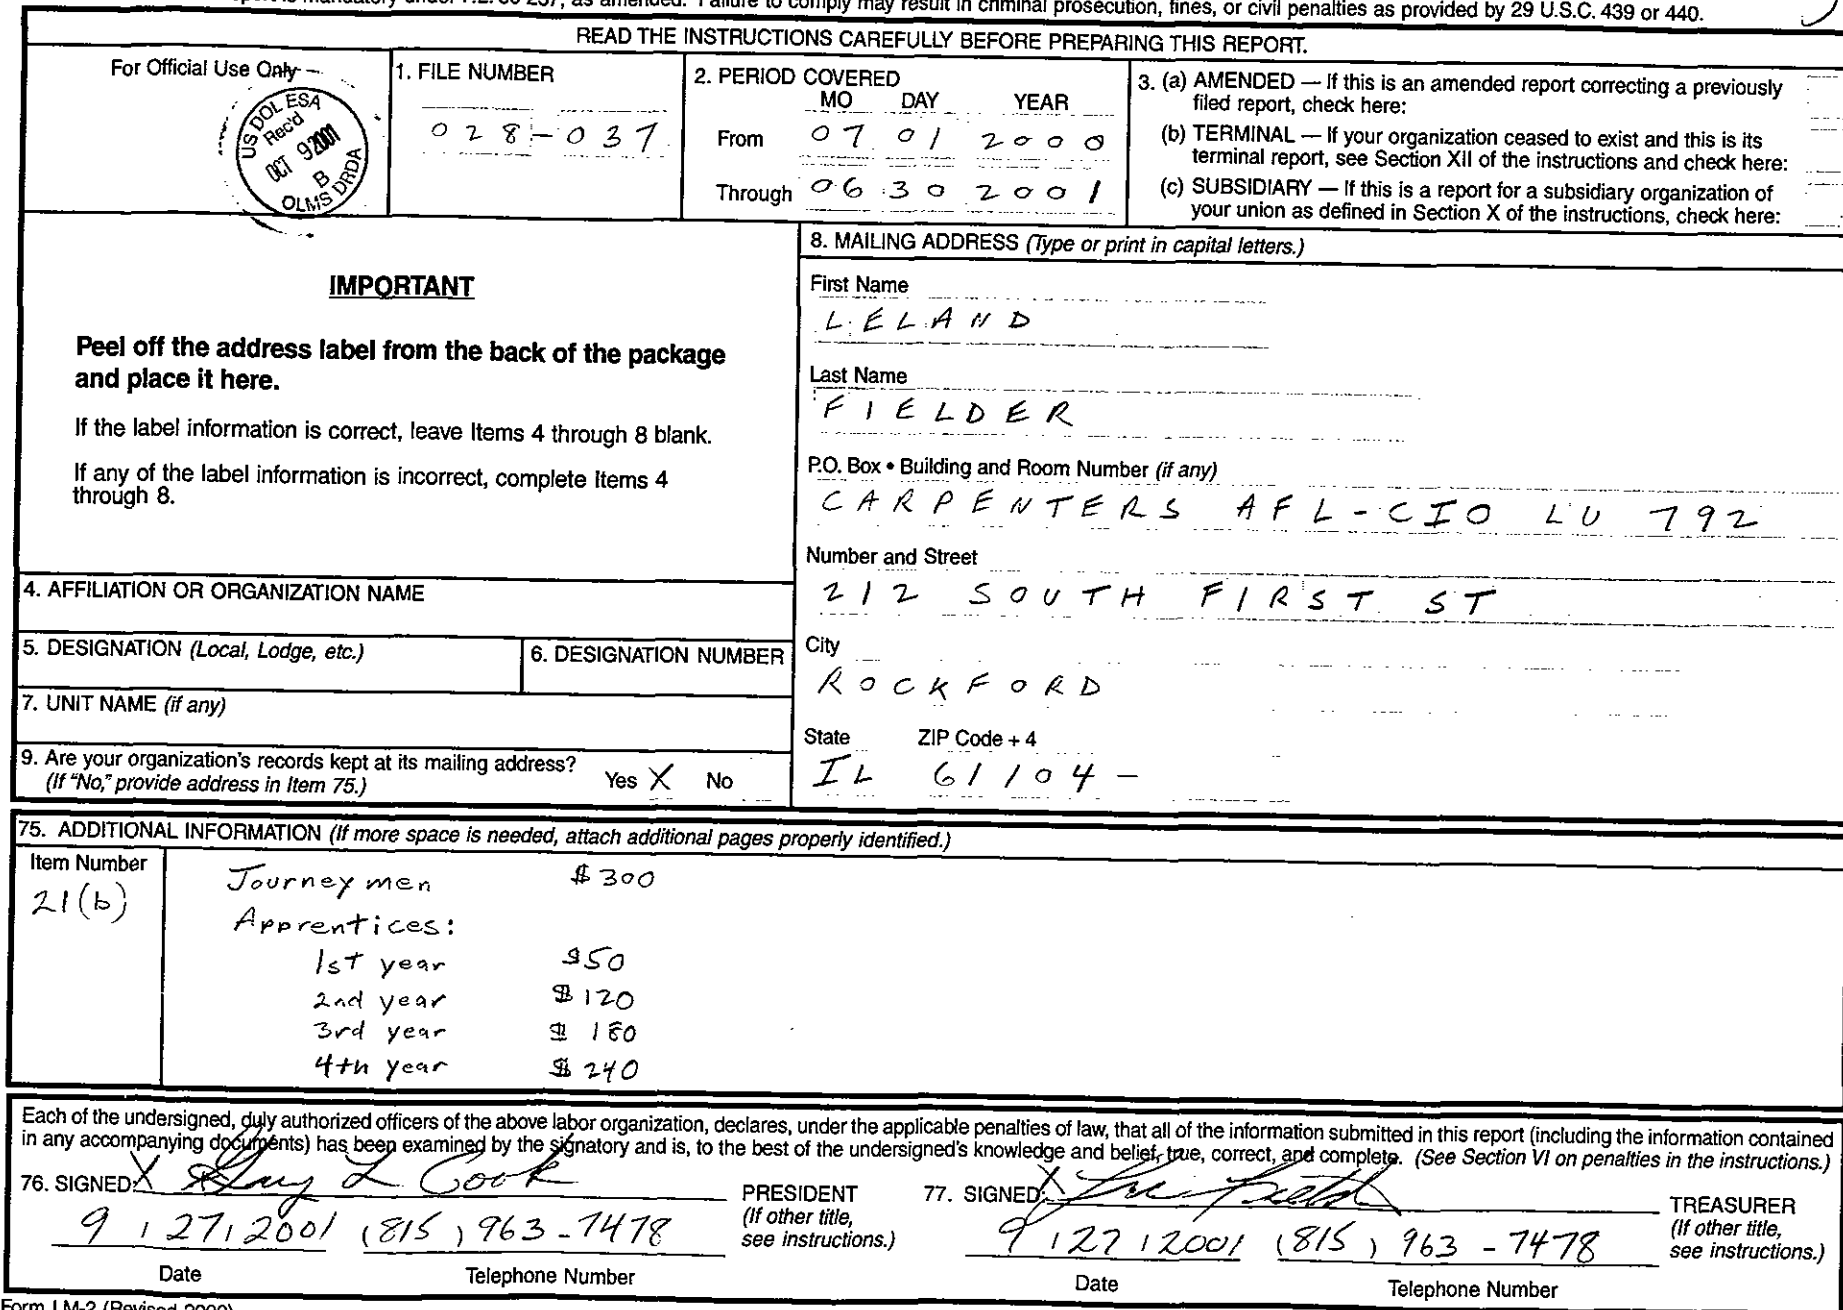 mandatory under P.L. 86-257, as amended. Failure to comply may result in criminal prosecution, fines, or civil penalties as provided by 29 U.S.C. 439 or 440.
READ THE INSTRUCTIONS CAREFULLY BEFORE PREPARING THIS REPORT.
For Official Use Only
US DOL ESA
Rec'd
OCT 9 2001
B
OLMS DRDA
1. FILE NUMBER
028-037
2. PERIOD COVERED
MO DAY YEAR
From 07 01 2000
Through 06 30 2001
3. (a) AMENDED — If this is an amended report correcting a previously
filed report, check here:
(b) TERMINAL — If your organization ceased to exist and this is its
terminal report, see Section XII of the instructions and check here:
(c) SUBSIDIARY — If this is a report for a subsidiary organization of
your union as defined in Section X of the instructions, check here:
IMPORTANT
Peel off the address label from the back of the package
and place it here.
If the label information is correct, leave Items 4 through 8 blank.
If any of the label information is incorrect, complete Items 4
through 8.
4. AFFILIATION OR ORGANIZATION NAME
5. DESIGNATION (Local, Lodge, etc.)
6. DESIGNATION NUMBER
7. UNIT NAME (if any)
9. Are your organization's records kept at its mailing address?
(If "No," provide address in Item 75.) Yes X No
8. MAILING ADDRESS (Type or print in capital letters.)
First Name
LELAND
Last Name
FIELDER
P.O. Box • Building and Room Number (if any)
CARPENTERS AFL-CIO LU 792
Number and Street
212 SOUTH FIRST ST
City
ROCKFORD
State ZIP Code + 4
IL 61104-
75. ADDITIONAL INFORMATION (If more space is needed, attach additional pages properly identified.)
Item Number
21(b)
Journeymen $300
Apprentices:
1st year $50
2nd year $120
3rd year $180
4th year $240
Each of the undersigned, duly authorized officers of the above labor organization, declares, under the applicable penalties of law, that all of the information submitted in this report (including the information contained
in any accompanying documents) has been examined by the signatory and is, to the best of the undersigned's knowledge and belief, true, correct, and complete. (See Section VI on penalties in the instructions.)
76. SIGNED: X L Cook
PRESIDENT
(If other title,
see instructions.)
9 / 27 / 2001 (815) 963-7478
Date Telephone Number
77. SIGNED: X
TREASURER
(If other title,
see instructions.)
9 / 27 / 2001 (815) 963-7478
Date Telephone Number
Form LM-2 (Revised 2000)